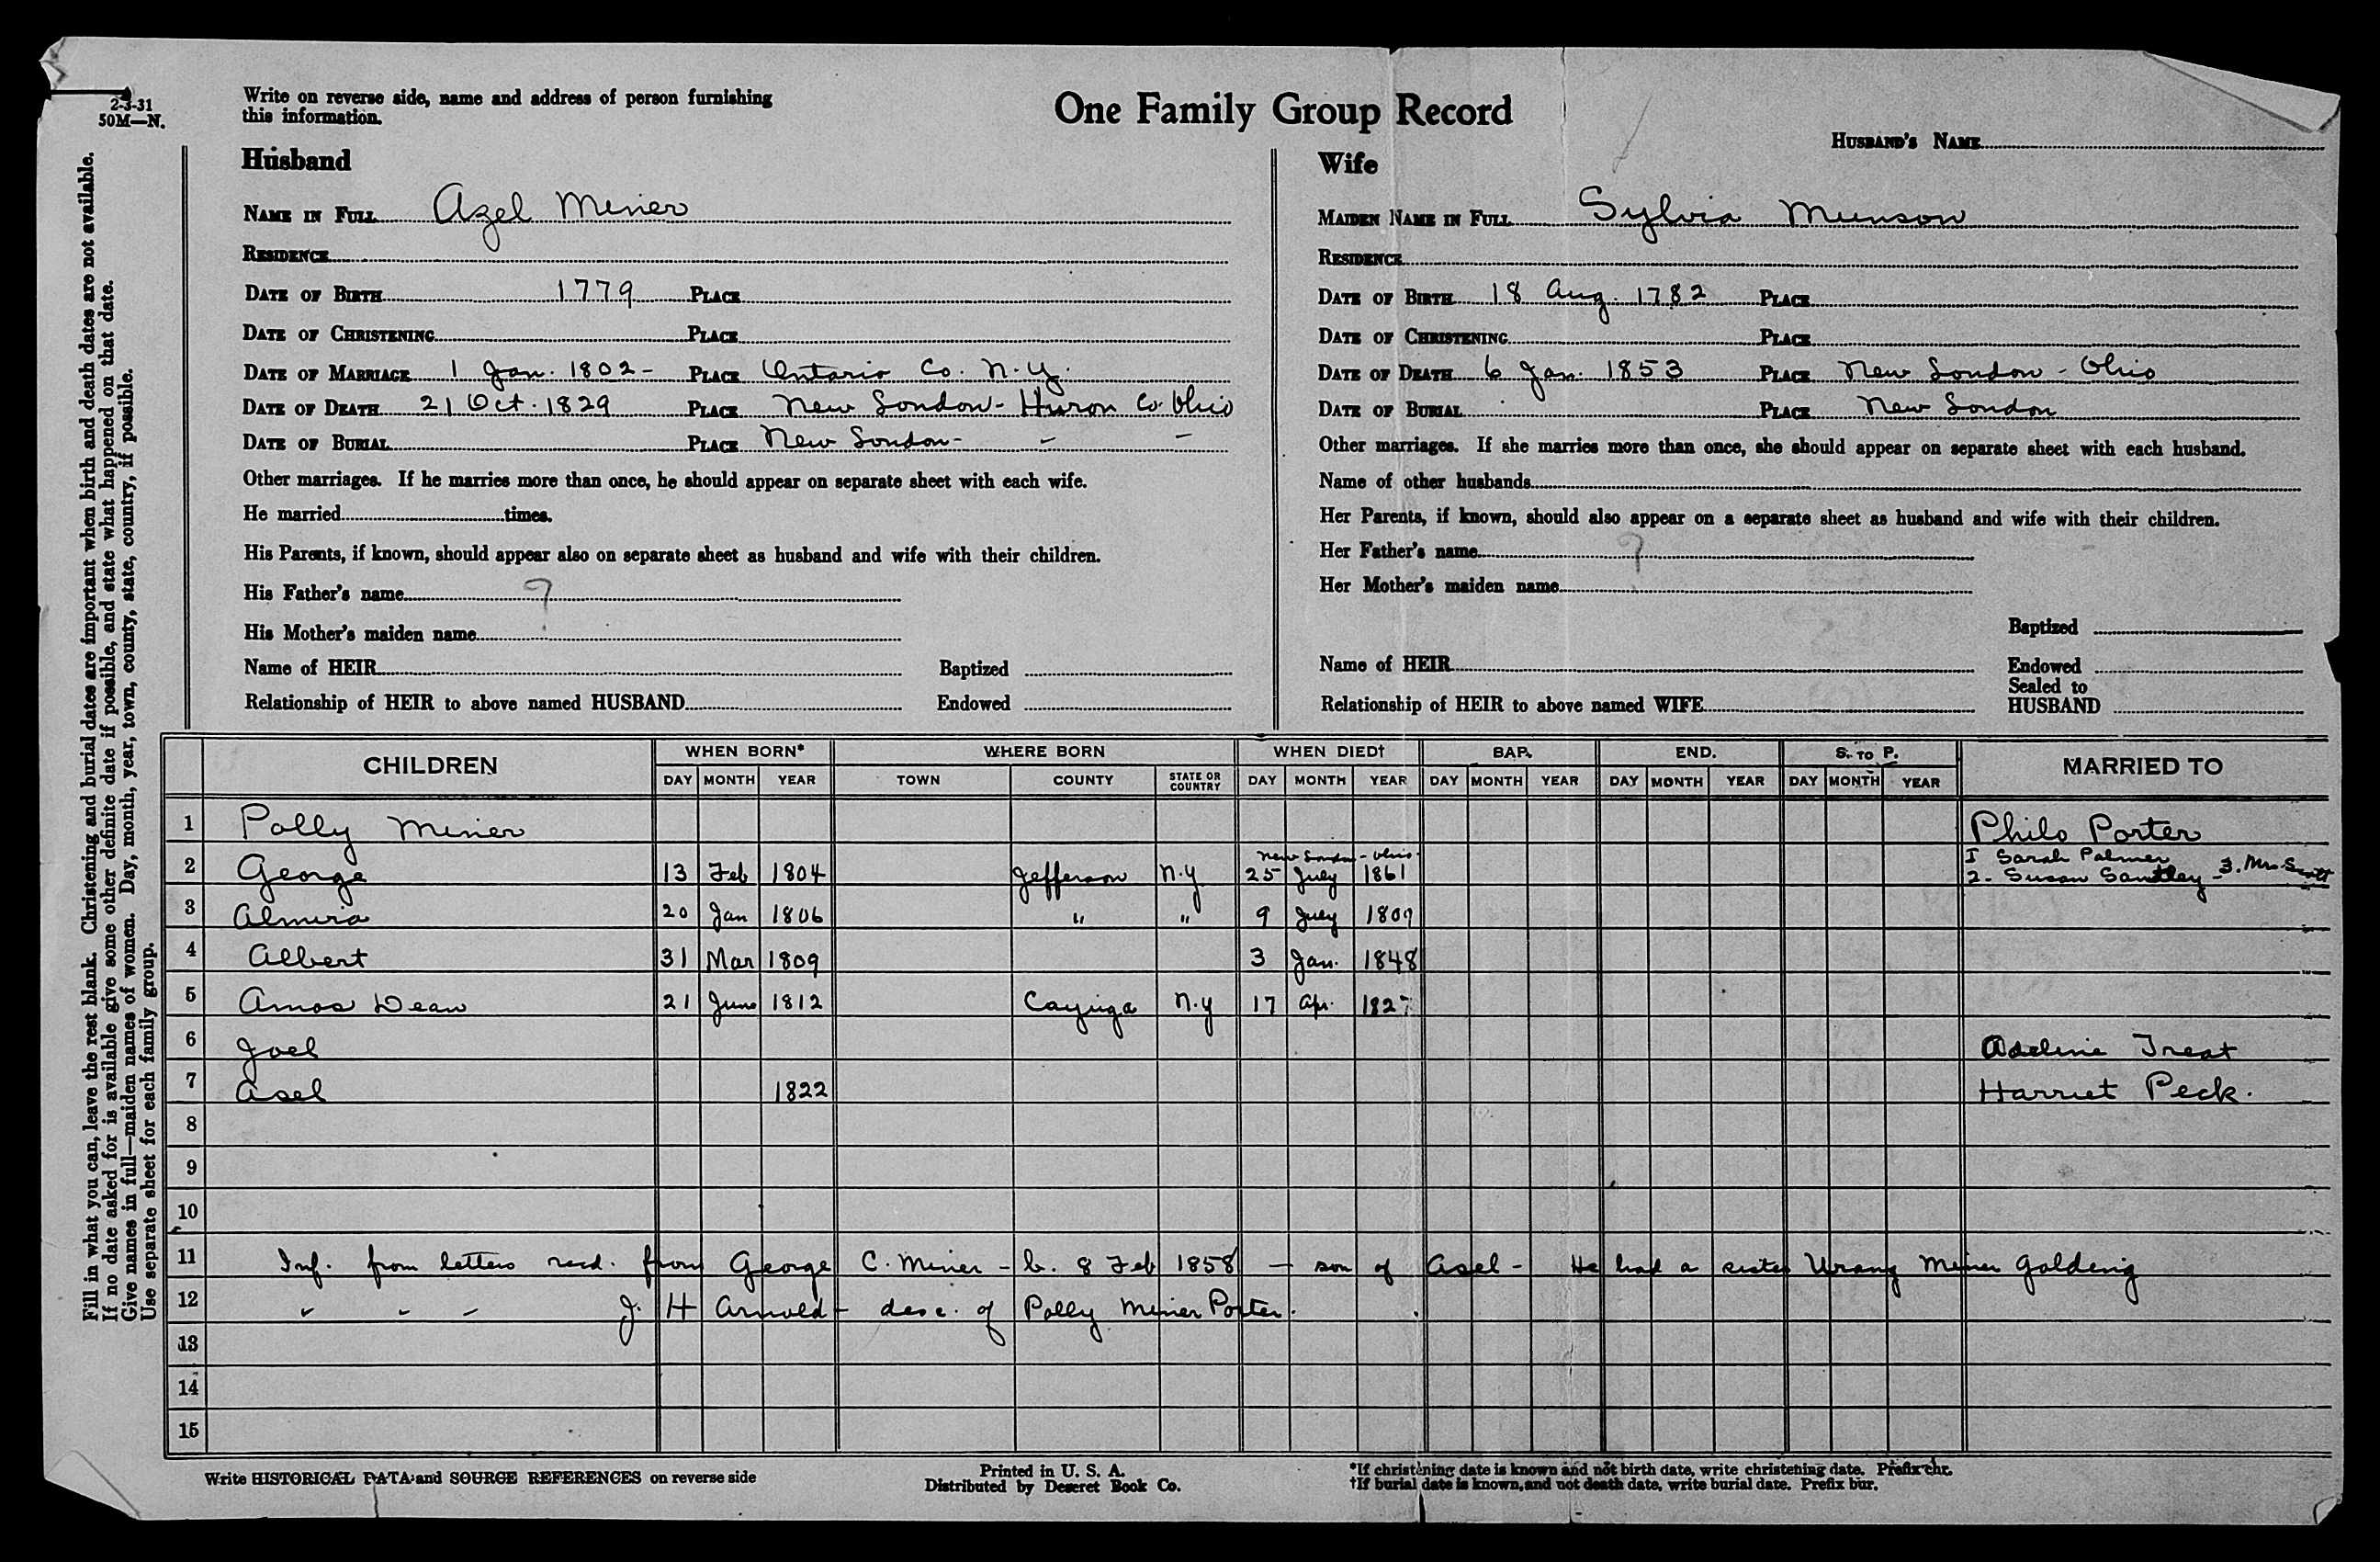 2-3-31
50M—N.
Write on reverse side, name and address of person furnishing
this information.
One Family Group Record
HUSBAND'S NAME
Fill in what you can, leave the rest blank. Christening and burial dates are important when birth and death dates are not available.
If no date asked for is available give some other definite date if possible, and state what happened on that date.
Give names in full—maiden names of women. Day, month, year, town, county, state, country, if possible.
Use separate sheet for each family group.
Husband
NAME IN FULL Azel Miner
RESIDENCE
DATE OF BIRTH 1779 PLACE
DATE OF CHRISTENING PLACE
DATE OF MARRIAGE 1 Jan. 1802- PLACE Ontario Co. N.Y.
DATE OF DEATH 21 Oct. 1829 PLACE New London- Huron Co. Ohio
DATE OF BURIAL PLACE New London- - -
Other marriages. If he marries more than once, he should appear on separate sheet with each wife.
He married times.
His Parents, if known, should appear also on separate sheet as husband and wife with their children.
His Father's name ?
His Mother's maiden name
Name of HEIR Baptized
Relationship of HEIR to above named HUSBAND Endowed
Wife
MAIDEN NAME IN FULL Sylvia Munson
RESIDENCE
DATE OF BIRTH 18 Aug. 1782 PLACE
DATE OF CHRISTENING PLACE
DATE OF DEATH 6 Jan. 1853 PLACE New London - Ohio
DATE OF BURIAL PLACE New London
Other marriages. If she marries more than once, she should appear on separate sheet with each husband.
Name of other husbands
Her Parents, if known, should also appear on a separate sheet as husband and wife with their children.
Her Father's name ?
Her Mother's maiden name
Baptized
Name of HEIR Endowed
Sealed to
Relationship of HEIR to above named WIFE HUSBAND
CHILDREN WHEN BORN* WHERE BORN WHEN DIED† BAP. END. S. TO P. MARRIED TO
DAY MONTH YEAR TOWN COUNTY STATE OR COUNTRY DAY MONTH YEAR DAY MONTH YEAR DAY MONTH YEAR DAY MONTH YEAR
1 Polly Miner Philo Porter
New London - Ohio. 1 Sarah Palmer
2 George 13 Feb 1804 Jefferson N.Y 25 July 1861 2. Susan - 3. Mrs. Scott
3 Almira 20 Jan 1806 " " 9 July 1809
4 Albert 31 Mar 1809 3 Jan. 1848
5 Amos Dean 21 June 1812 Cayuga N.Y 17 Apr. 1827
6 Joel Adeline Treat
7 Asel 1822 Harriet Peck.
8
9
10
11 Inf. from letters recd. from George C. Miner - b. 8 Feb 1858 - son of Asel - He had a sister Miner Golding
12 " " " J. H Arnold - desc. of Polly Miner Porter.
13
14
15
Write HISTORICAL DATA and SOURCE REFERENCES on reverse side
Printed in U. S. A.
Distributed by Deseret Book Co.
*If christening date is known and not birth date, write christening date. Prefix chr.
†If burial date is known, and not death date, write burial date. Prefix bur.